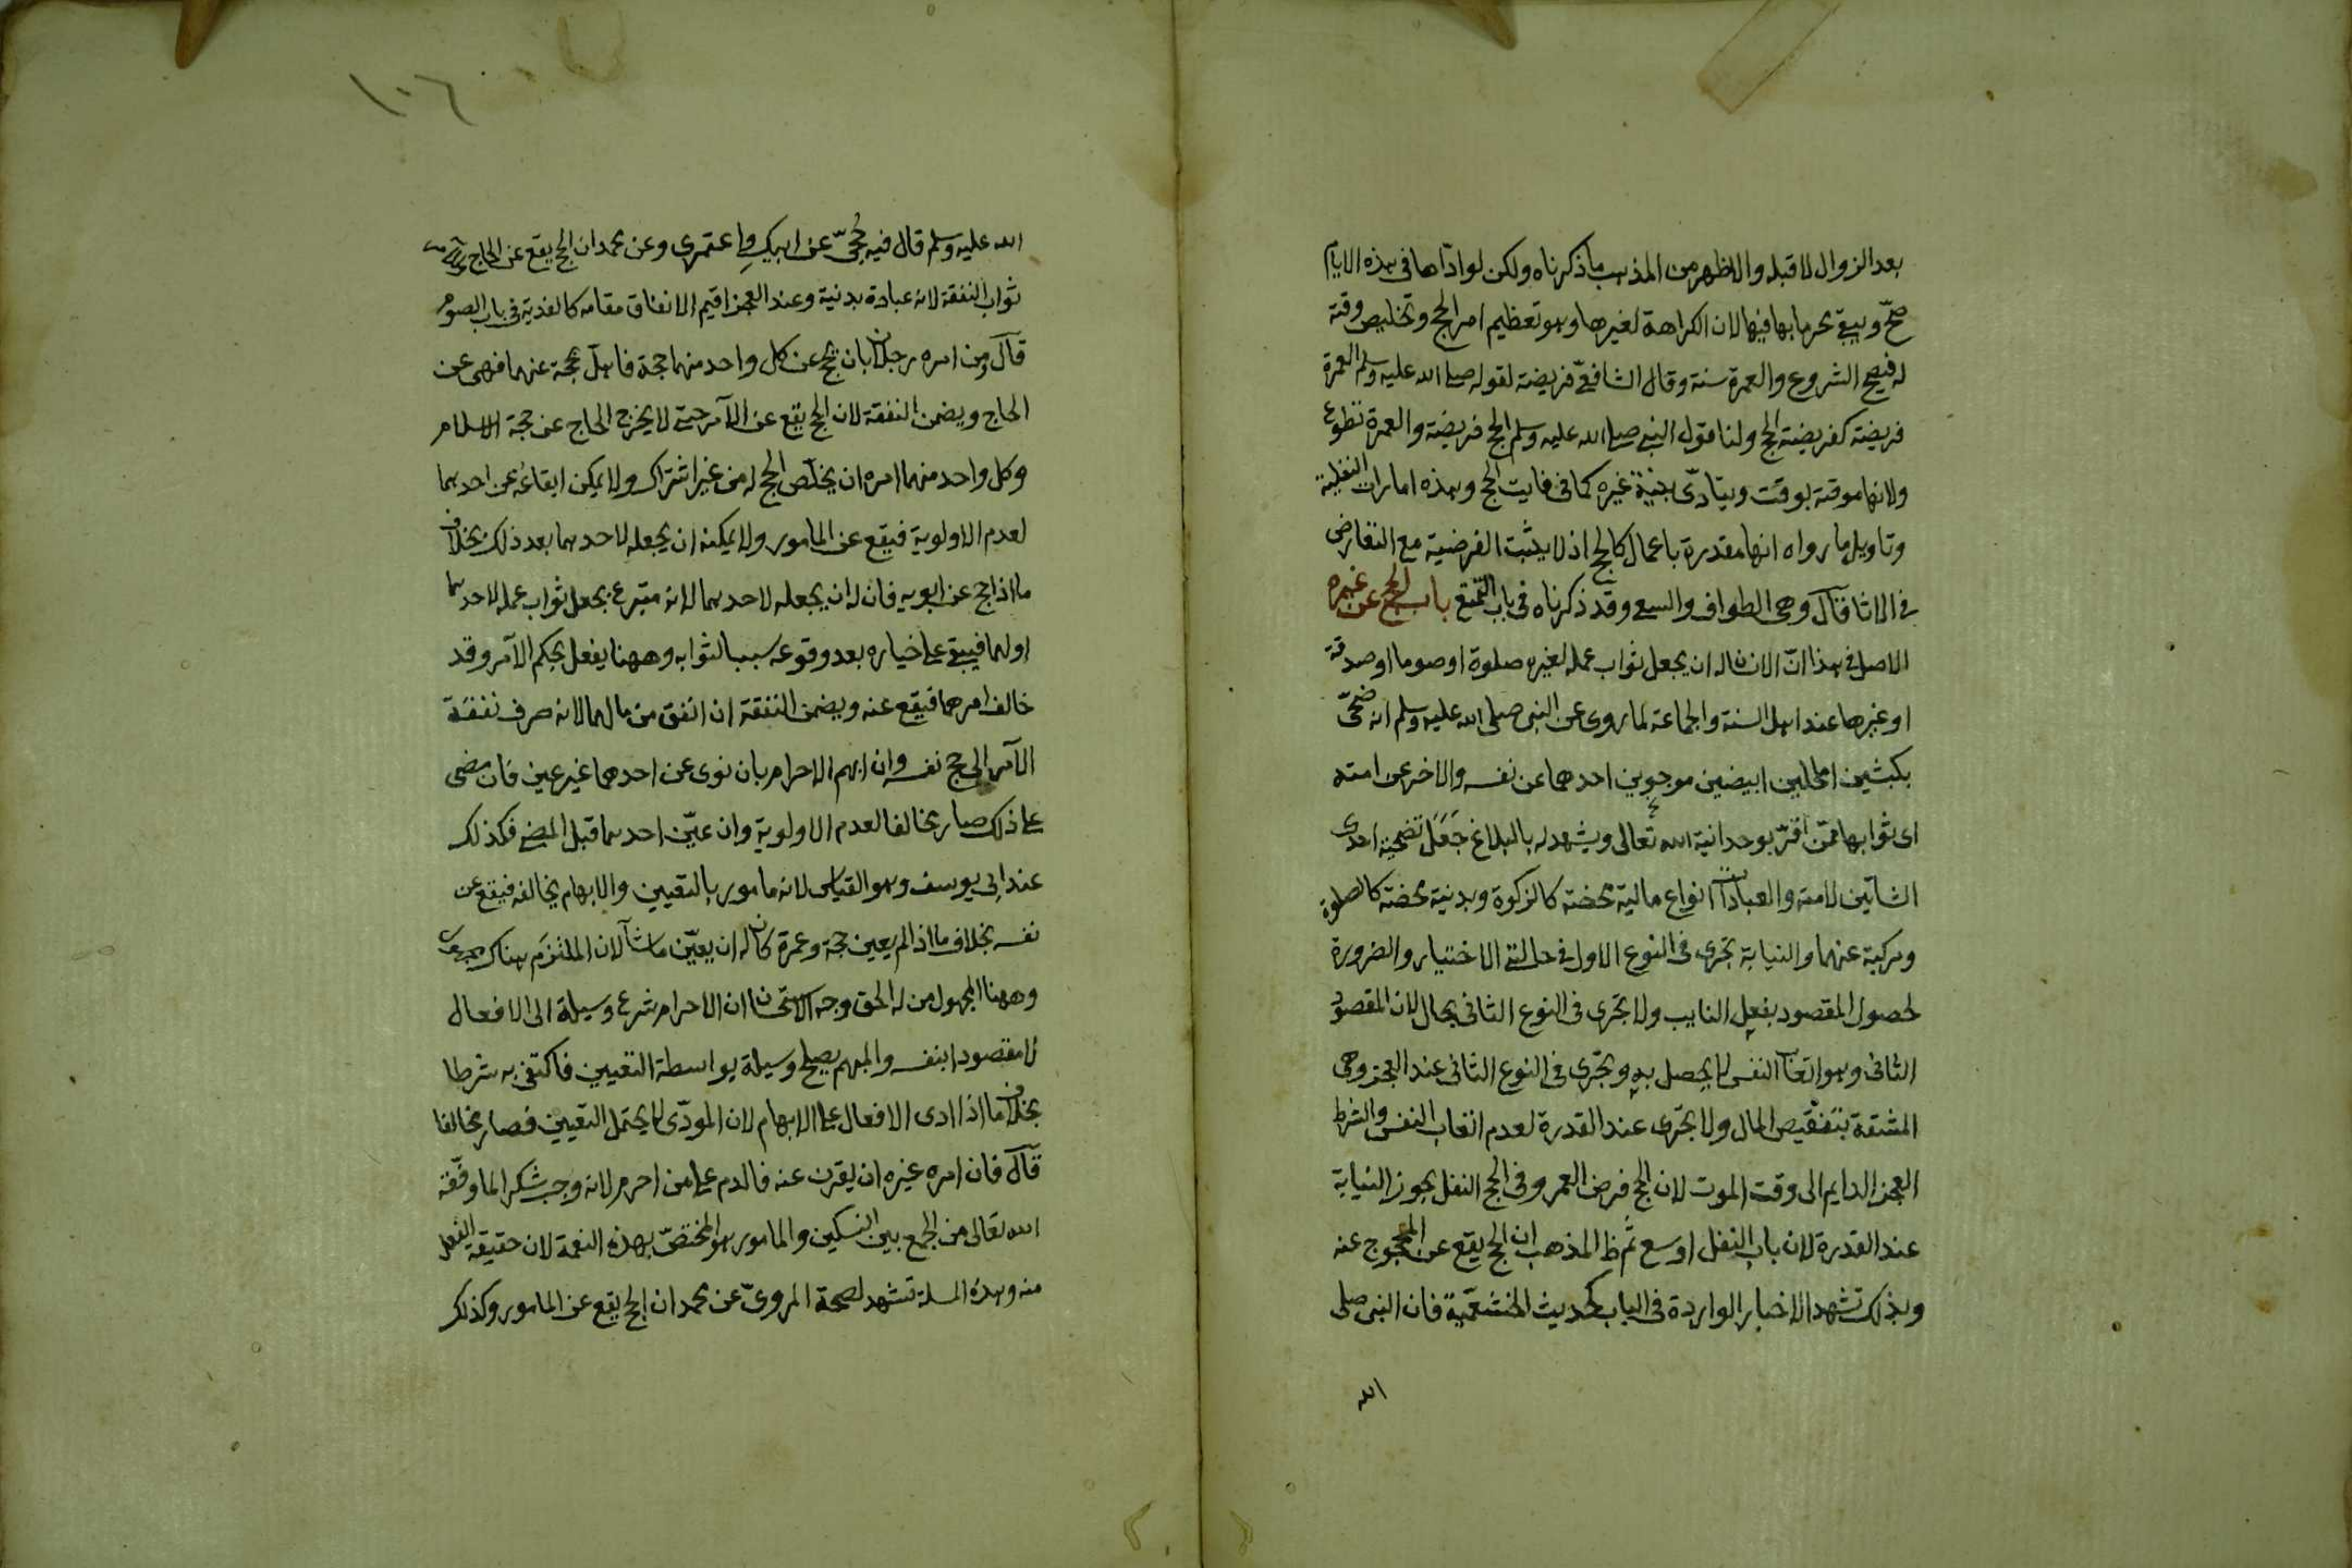 بعد الزوال لا قبله والاظهر من المذهب ما ذكرناه ولكن لو ادّاها في هذه الايام
صحّ ويبقى محرما بها فيها لان الكراهة لغيرها وهو تعظيم امر الحج وتخليص وقته
له فيصح الشروع والعمرة سنة وقال الشافعيّ فريضة لقوله صلى الله عليه وسلم العمرة
فريضة كفريضة الحج ولنا قول النبي صلى الله عليه وسلم الحج فريضة والعمرة تطوع
ولانها غير موقتة بوقت ويتأدّى بنيّة غيره كما في فايت الحج وهذه امارات النفلية
وتاويل ما رواه انها مقدرة باعمال كالحج اذ لا يثبت الفرضية مع التعارض
في الاثار قال وهى الطواف والسعى وقد ذكرناه في باب التمتع باب الحج عن غيره
الاصل في هذا انّ الانسان له ان يجعل ثواب عمله لغيره صلوة او صوما او صدقة
او غيرها عند اهل السنة والجماعة لما روى عن النبى صلى الله عليه وسلم انه ضحّى
بكبشين املحين ابيضين موجوين احدهما عن نفسه والاخر عن امته
اى ثوابها ممّن اقرّ بوحدانية الله تعالى ويشهد له بالبلاغ جَعَلَ تضحية احدى
الشاتين لامته والعبادات انواع مالية محضة كالزكوة وبدنية محضة كالصلوة
ومركبة عنهما والنيابة تجرى في النوع الاول في حالتى الاختيار والضرورة
لحصول المقصود بفعل النايب ولا تجرى في النوع الثانى بحال لان المقصود
الثانى وهو اتعاب النفس لا يحصل به وتجرى في النوع الثانى عند العجز وهى
المشقة بتنقيص المال ولا تجرى عند القدرة لعدم اتعاب النفس والشرط
العجز الدايم الى وقت الموت لان الحج فرض العمر وفى الحج النفل يجوز النيابة
عند القدرة لان باب النفل اوسع ثم ظ المذهب ان الحج يقع عن المحجوج عنه
وبذلك تشهد الاخبار الواردة في الباب كحديث الخثعميّة فان النبى صلى
الله
١٠٦
الله عليه وسلم قال فيه حُجّى عن ابيكِ واعتمرى وعن محمد ان الحج يقع عن الحاج وللآمر
ثواب النفقة لانه عبادة بدنية وعند العجز اقيم الانفاق مقامه كالفدية في باب الصوم
قال ومن امره رجلان بان يحج عن كل واحد منهما حجة فاهلّ بحجة عنهما فهى عن
الحاج ويضمن النفقة لان الحج يقع عن الآمر حتى لا يخرج الحاج عن حجة الاسلام
وكل واحد منهما امره ان يخلّص الحج له من غير اشتراك ولا يمكن ايقاعُه عن احدهما
لعدم الاولوية فيقع عن المامور ولا يمكنه ان يجعله لاحدهما بعد ذلك بخلاف
ما اذا حج عن ابويه فان له ان يجعله لاحدهما لانه متبرع بجعل ثواب عمله لاحدهما
او لهما فيبقى على خياره بعد وقوعه سببا لثوابه وههنا يفعل بحكم الآمر وقد
خالف امرهما فيقع عنه ويضمن النفقة ان انفق من مالهما لانه صرف نفقة
الآمر الى حج نفسه وان ابهم الاحرام بان نوى عن احدهما غير عين فان مضى
على ذلك صار مخالفا لعدم الاولوية وان عيّن احدهما قبل المضى فكذلك
عند ابى يوسف وهو القياس لانه مامور بالتعيين والابهام يخالفه فيقع عن
نفسه بخلاف ما اذا لم يعين حجة وعمرة كان له ان يعيّن ما شآ لان الملتزَم هناك مجهول
وههنا المجهول من له الحق وجه الاستحسان ان الاحرام شرع وسيلة الى الافعال
لا مقصودا بنفسه والمبهم يصلح وسيلة بواسطة التعيين فاكتفى به شرطا
بخلاف ما اذا ادى الافعال على الابهام لان المودّى لا يحتمل التعيين فصار مخالفا
قال فان امره غيره ان يقرن عنه فالدم على من احرم لانه وجب شكرا لما وفّقه
الله تعالى من الجمع بين النسكين والمامور هو المختصّ بهذه النعمة لان حقيقة الفعل
منه وهذه المسلة تشهد لصحة المروىّ عن محمد ان الحج يقع عن المامور وكذلك